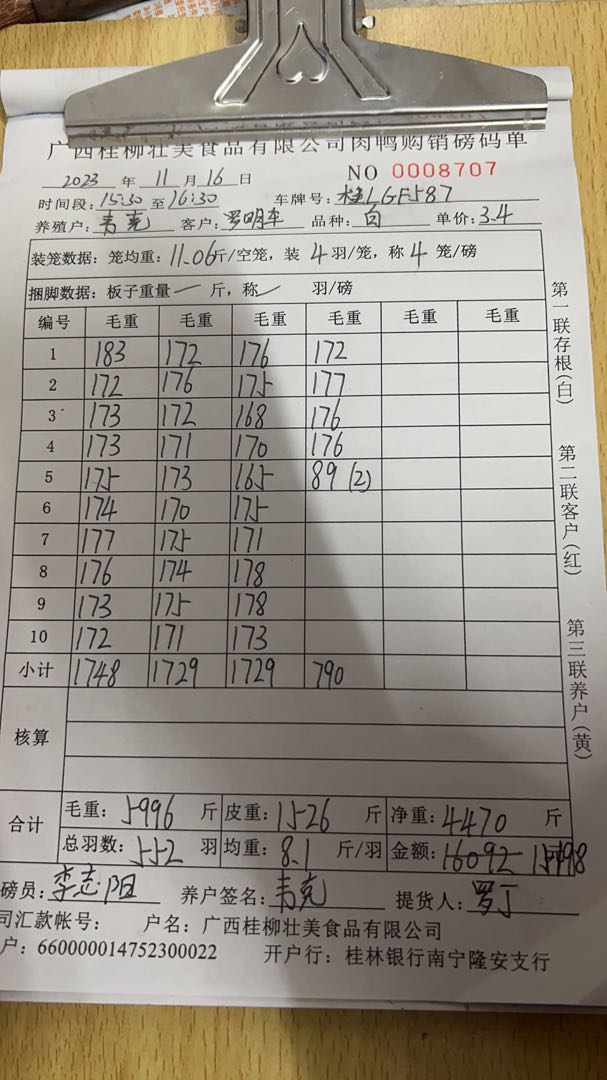 广西桂柳壮美食品有限公司肉鸭购销磅码单
2023 年 11 月 16 日 NO 0008707
时间段: 15:30 至 16:30 车牌号: 桂LGF587
养殖户: 韦克 客户: 罗明车 品种: 白 单价: 3.4
装笼数据: 笼均重: 11.06斤/空笼, 装 4 羽/笼, 称 4 笼/磅
捆脚数据: 板子重量 一 斤, 称 羽/磅
编号 毛重 毛重 毛重 毛重 毛重 毛重
1 183 172 176 172
2 172 176 175 177
3 173 172 168 176
4 173 171 170 176
5 175 173 165 89 (2)
6 174 170 175
7 177 175 171
8 176 174 178
9 173 175 178
10 172 171 173
小计 1748 1729 1729 790
核算
合计 毛重: 5996 斤 皮重: 1526 斤 净重: 4470 斤
总羽数: 552 羽 均重: 8.1 斤/羽 金额: 16092
磅员: 李志阳 养户签名: 韦克 提货人: 罗丁
司汇款帐号: 户名: 广西桂柳壮美食品有限公司
户: 660000014752300022 开户行: 桂林银行南宁隆安支行
第一联存根(白)
第二联客户(红)
第三联养户(黄)